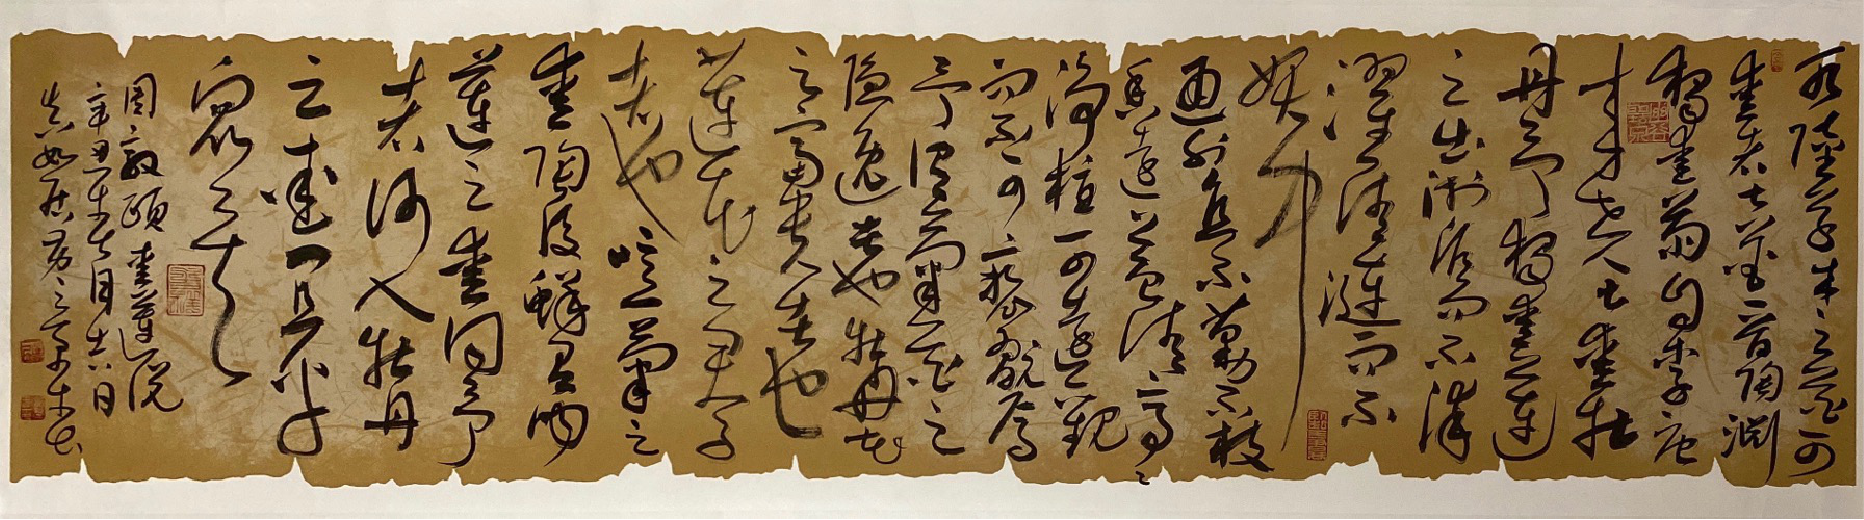 水陸草木之花可
愛者甚蕃晉陶淵
獨愛菊自李唐
来世人甚愛牡
丹予獨愛蓮
之出淤泥而不染
濯清漣而不
妖中
通外直不蔓不枝
香遠益清亭亭
淨植可遠觀
而不可褻玩焉
予謂菊花之
隱逸者也牡丹花
之富貴者也
蓮花之君子
者也噫菊之
愛陶後鮮有聞
蓮之愛同予
者何人牡丹
之愛宜乎
眾矣
周敦頤愛蓮說
辛丑年七月十六日
真如居